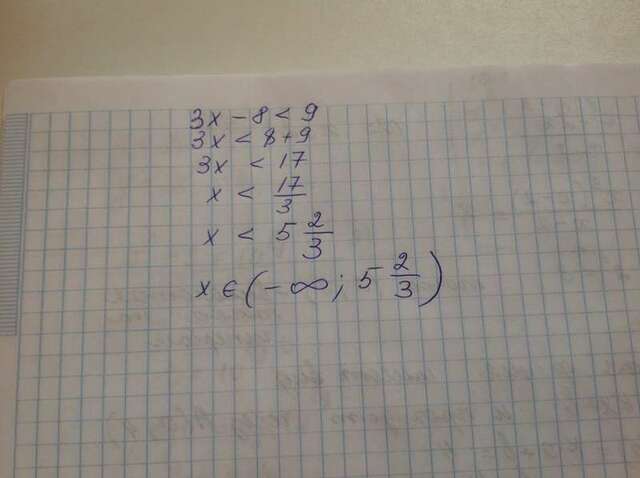 3x - 8 < 9
3x < 8 + 9
3x < 17
x < 17/3
x < 5 2/3
x ∈ (-∞; 5 2/3)